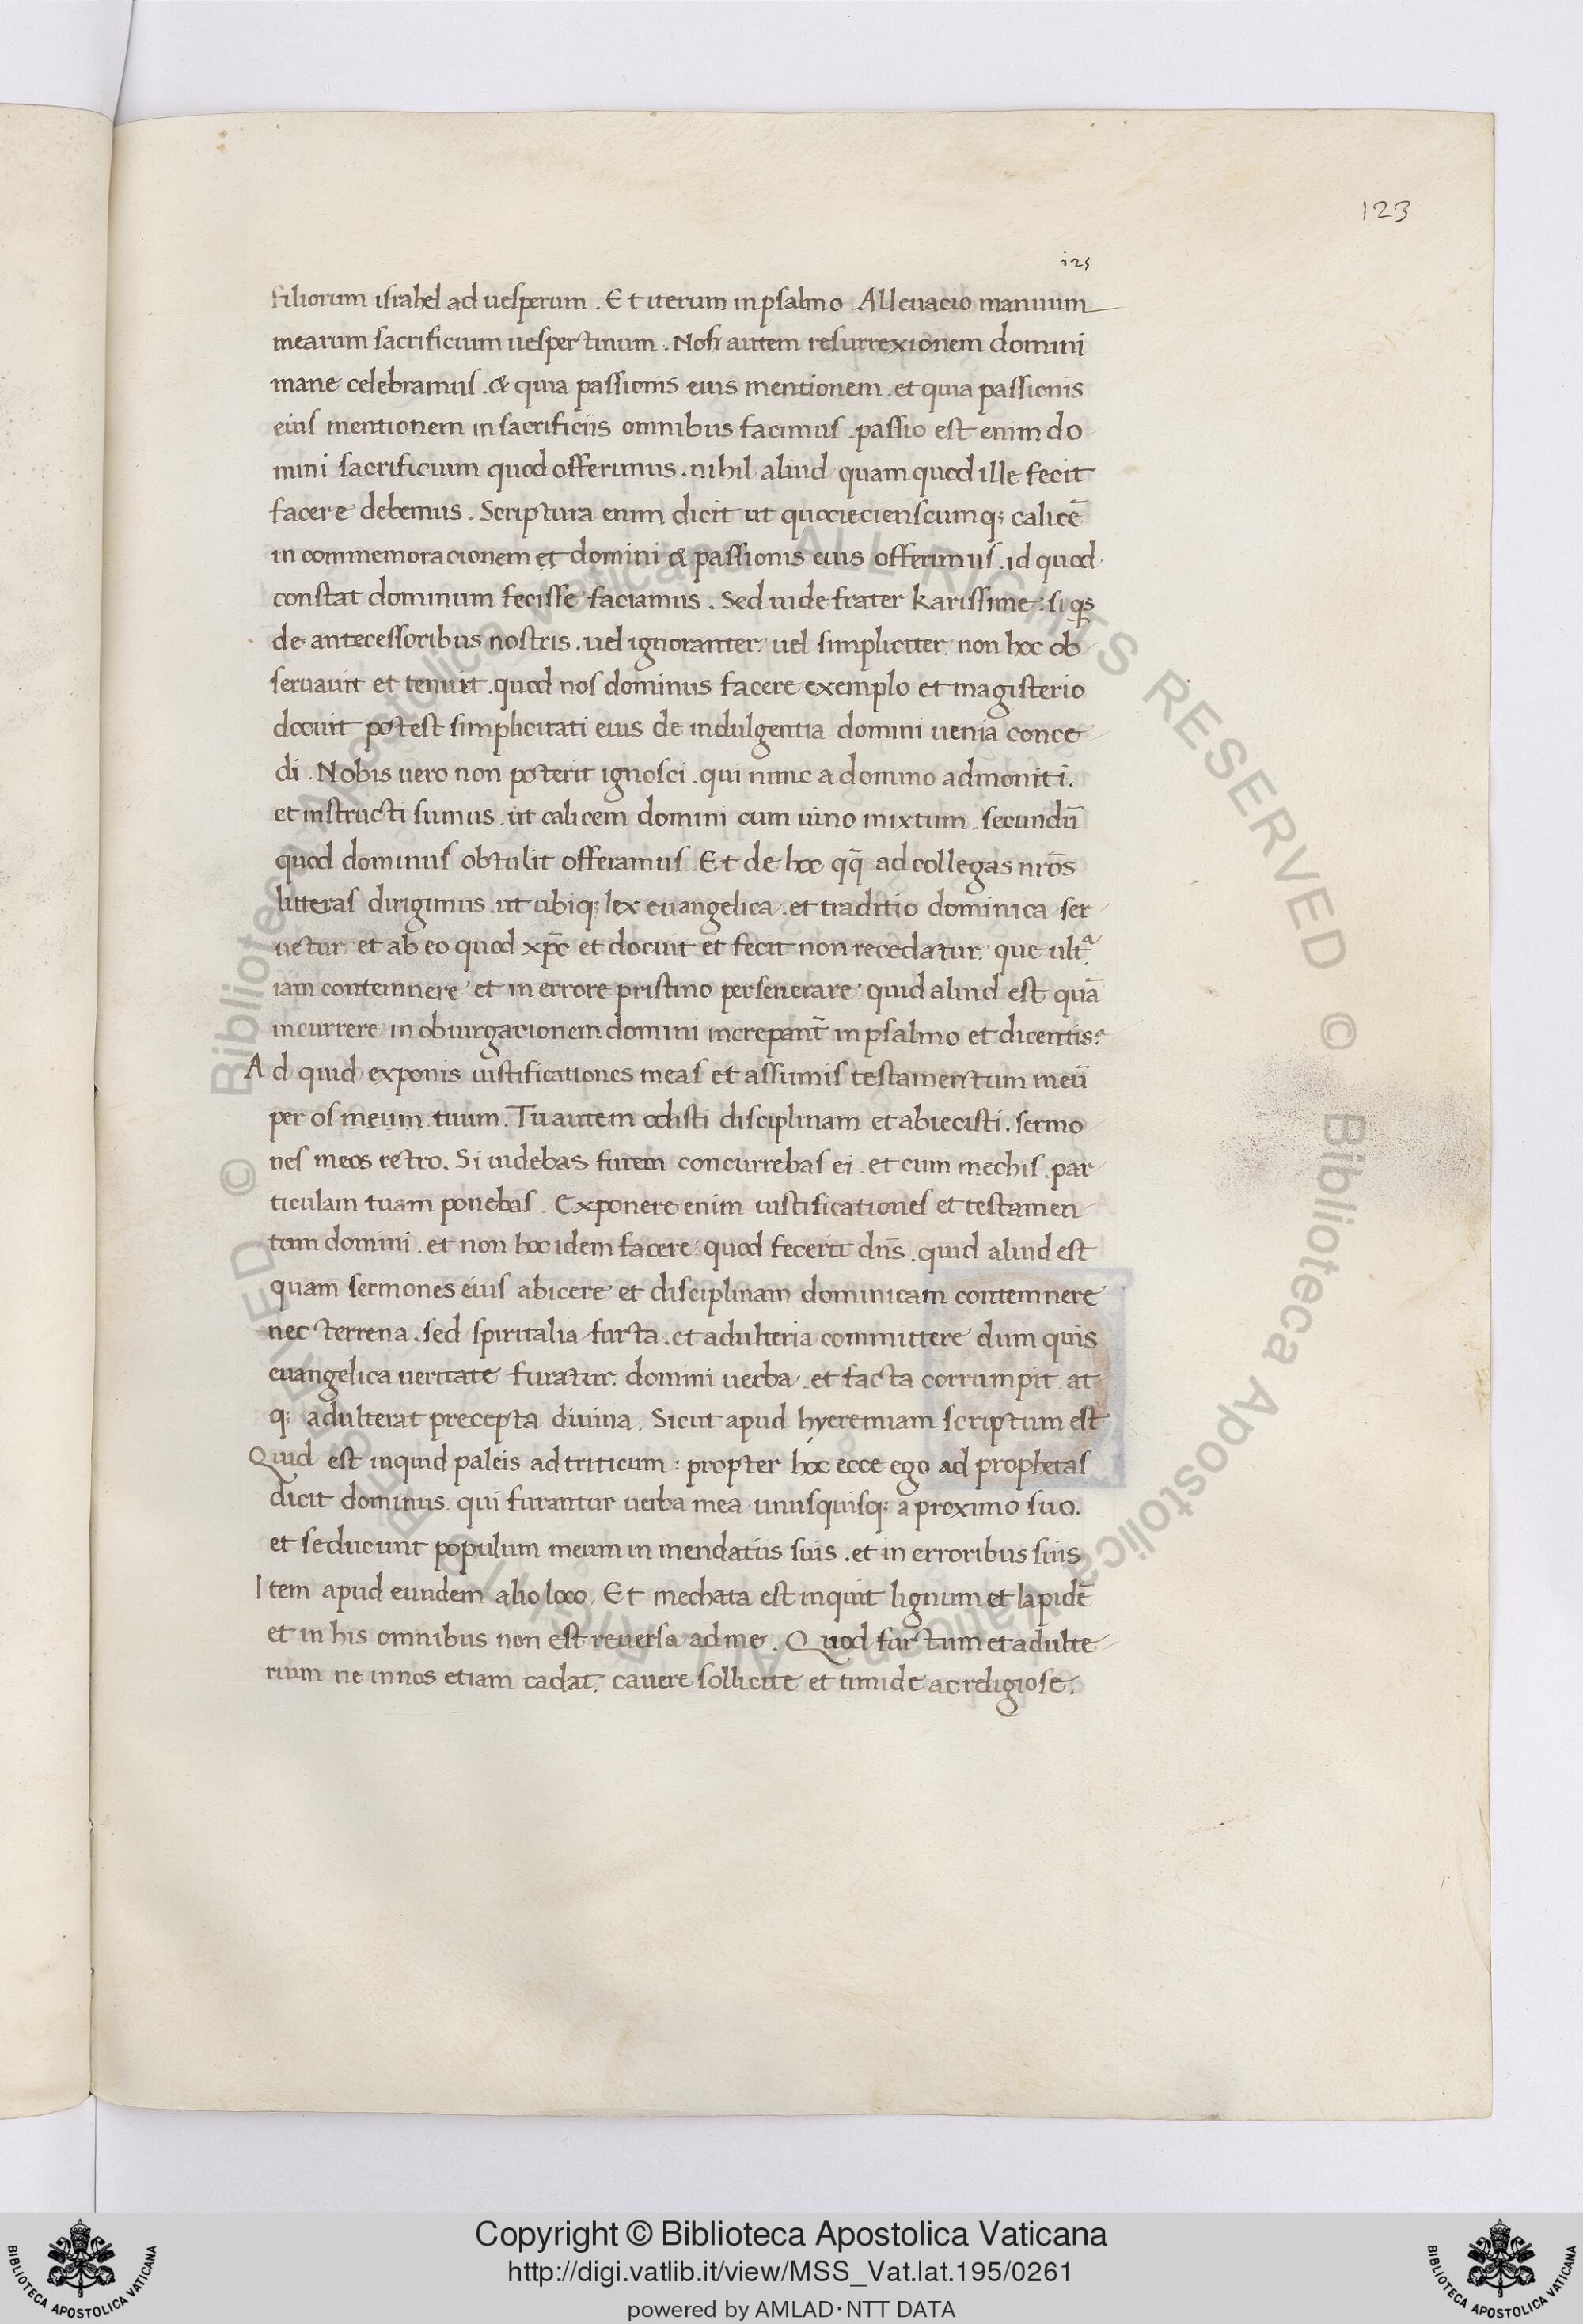 123
125
filiorum israhel ad uesperum . Et iterum in psalmo . Alleuacio manuum
mearum sacrificium uespertinum . Nos autem resurrexionem domini
mane celebramus . & quia passionis eius mentionem . et quia passionis
eius mentionem in sacrificiis omnibus facimus . passio est enim do
mini sacrificium quod offerimus . nihil aliud quam quod ille fecit
facere debemus . Scriptura enim dicit ut quociecienscumq; calicē
in commemoracionem et domini & passionis eius offerimus . id quod
constat dominum fecisse faciamus . Sed uide frater karissime . si qs
de antecessoribus nostris . uel ignoranter . uel simpliciter . non hoc ob
seruauit et tenuit . quod nos dominus facere exemplo et magisterio
docuit potest simplicitati eius de indulgentia domini uenia conce
di . Nobis uero non poterit ignosci . qui nunc a domino admoniti .
et instructi sumus . ut calicem domini cum uino mixtum . secundū
quod dominus obtulit offeramus . Et de hoc qq̄ ad collegas nr̄os
litteras dirigimus . ut ubiq; lex euangelica . et traditio dominica ser
uetur . et ab eo quod xp̄c et docuit et fecit non recedatur . que ultᵃ
iam contemnere et in errore pristino perseuerare quid aliud est quā
incurrere in obiurgacionem domini increpant̄ in psalmo et dicentis .
Ad quid exponis iustificationes meas et assumis testamentum meū
per os meum tuum . Tu autem odisti disciplinam et abiecisti . sermo
nes meos retro . Si uidebas furem concurrebas ei . et cum mechis . par
ticulam tuam ponebas . Exponere enim iustificationes et testamen
tum domini . et non hoc idem facere quod fecerit dn̄s . quid aliud est
quam sermones eius abicere et disciplinam dominicam contemnere
nec terrena . sed spiritalia furta . et adulteria committere dum quis
euangelica ueritate furatur . domini uerba . et facta corrumpit at
q; adulterat precepta diuina . Sicut apud hyeremiam scriptum est
Quid est inquid paleis ad triticum : propter hoc ecce ego ad prophetas
dicit dominus qui furantur uerba mea unusquisq; a proximo suo .
et seducunt populum meum in mendatiis suis . et in erroribus suis
Item apud eundem alio loco . Et mechata est inquit lignum et lapidē
et in his omnibus non est reuersa ad me . Quod furtum et adulte
rium ne in nos etiam cadat . cauere sollicite et timide ac religiose .
© Biblioteca Apostolica Vaticana ALL RIGHTS RESERVED © Biblioteca Apostolica Vaticana ALL RIGHTS RESERVED
Copyright © Biblioteca Apostolica Vaticana
http://digi.vatlib.it/view/MSS_Vat.lat.195/0261
powered by AMLAD·NTT DATA
BIBLIOTECA APOSTOLICA VATICANA
BIBLIOTECA APOSTOLICA VATICANA